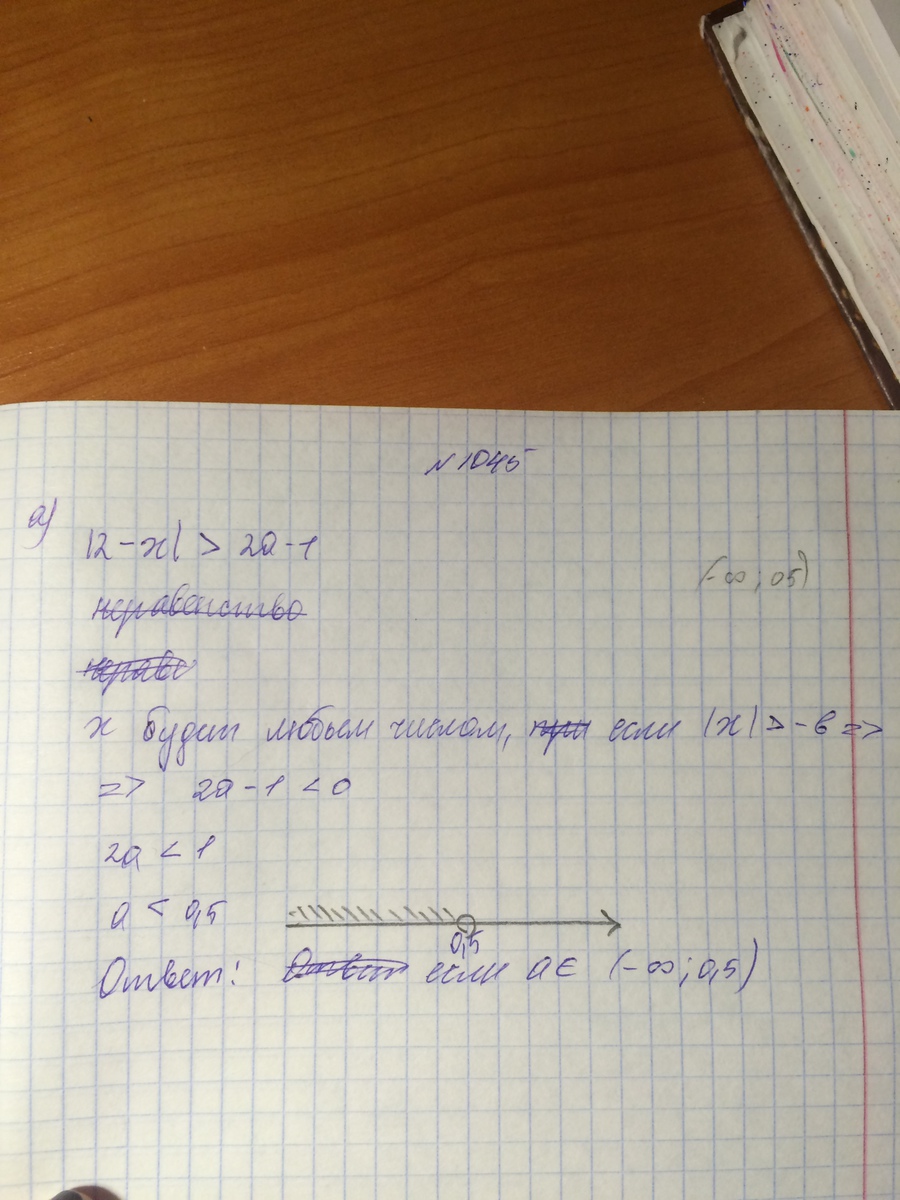 N 1045
а)
|2-x| > 2a-1
(-∞; 0,5)
неравенство
нераве
x будет любым числом, при если |x| > -b =>
=> 2a-1 < 0
2a < 1
a < 0,5
0,5
Ответ: Ответ если a ∈ (-∞; 0,5)